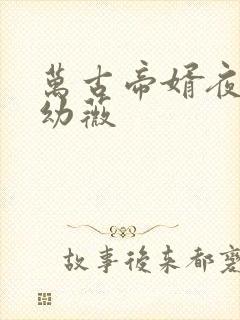 萬古帝婿夜
幼薇
故事後来都